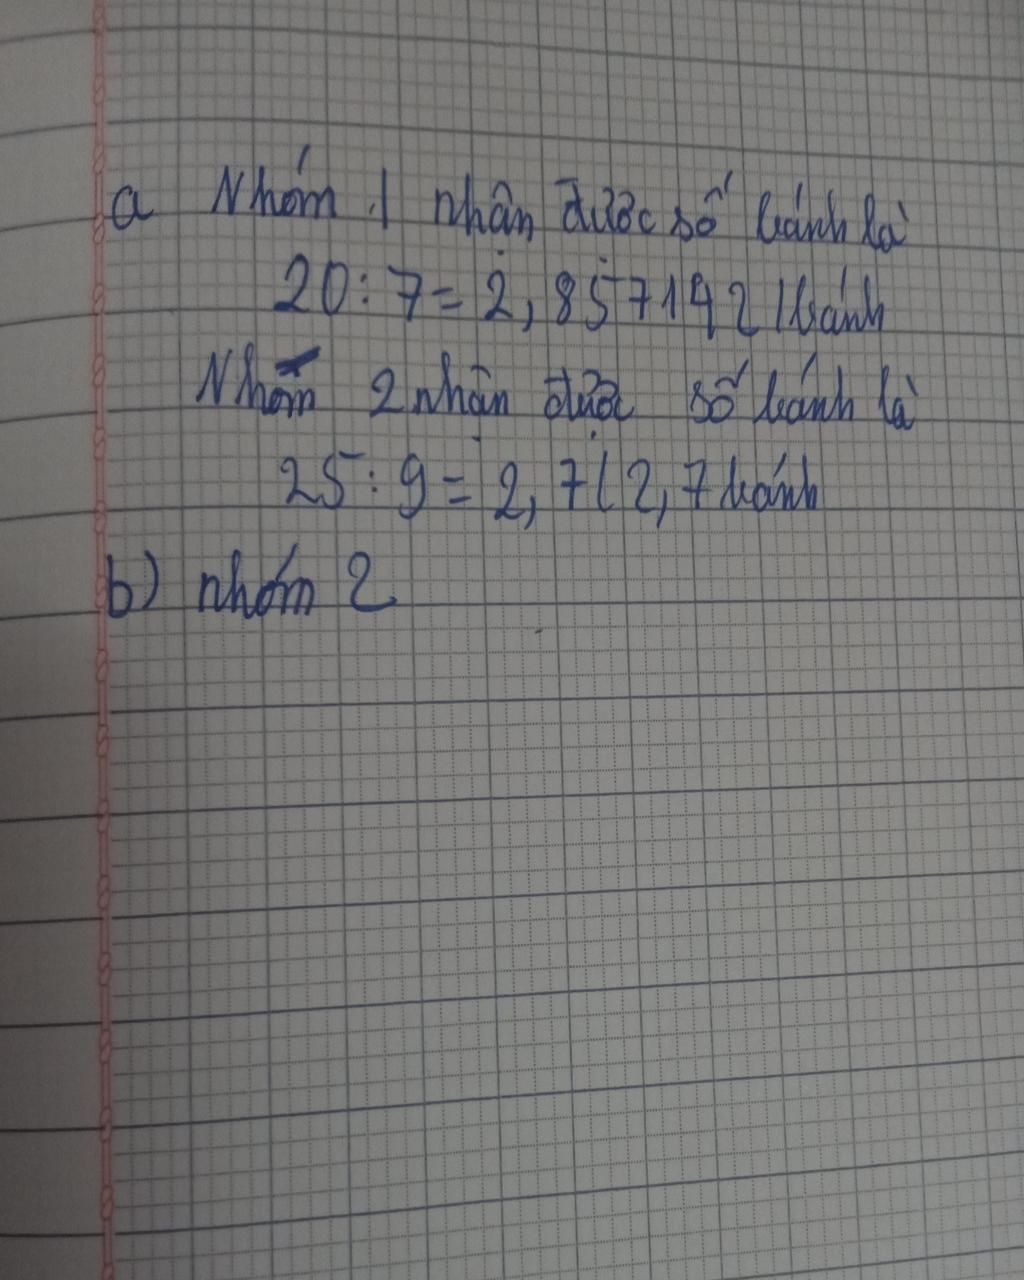 a Nhóm 1 nhận được số bánh là
20 : 7 = 2,857142 bánh
Nhóm 2 nhận được số bánh là
25 : 9 = 2,7 ( 2,7 bánh
b) nhóm 2